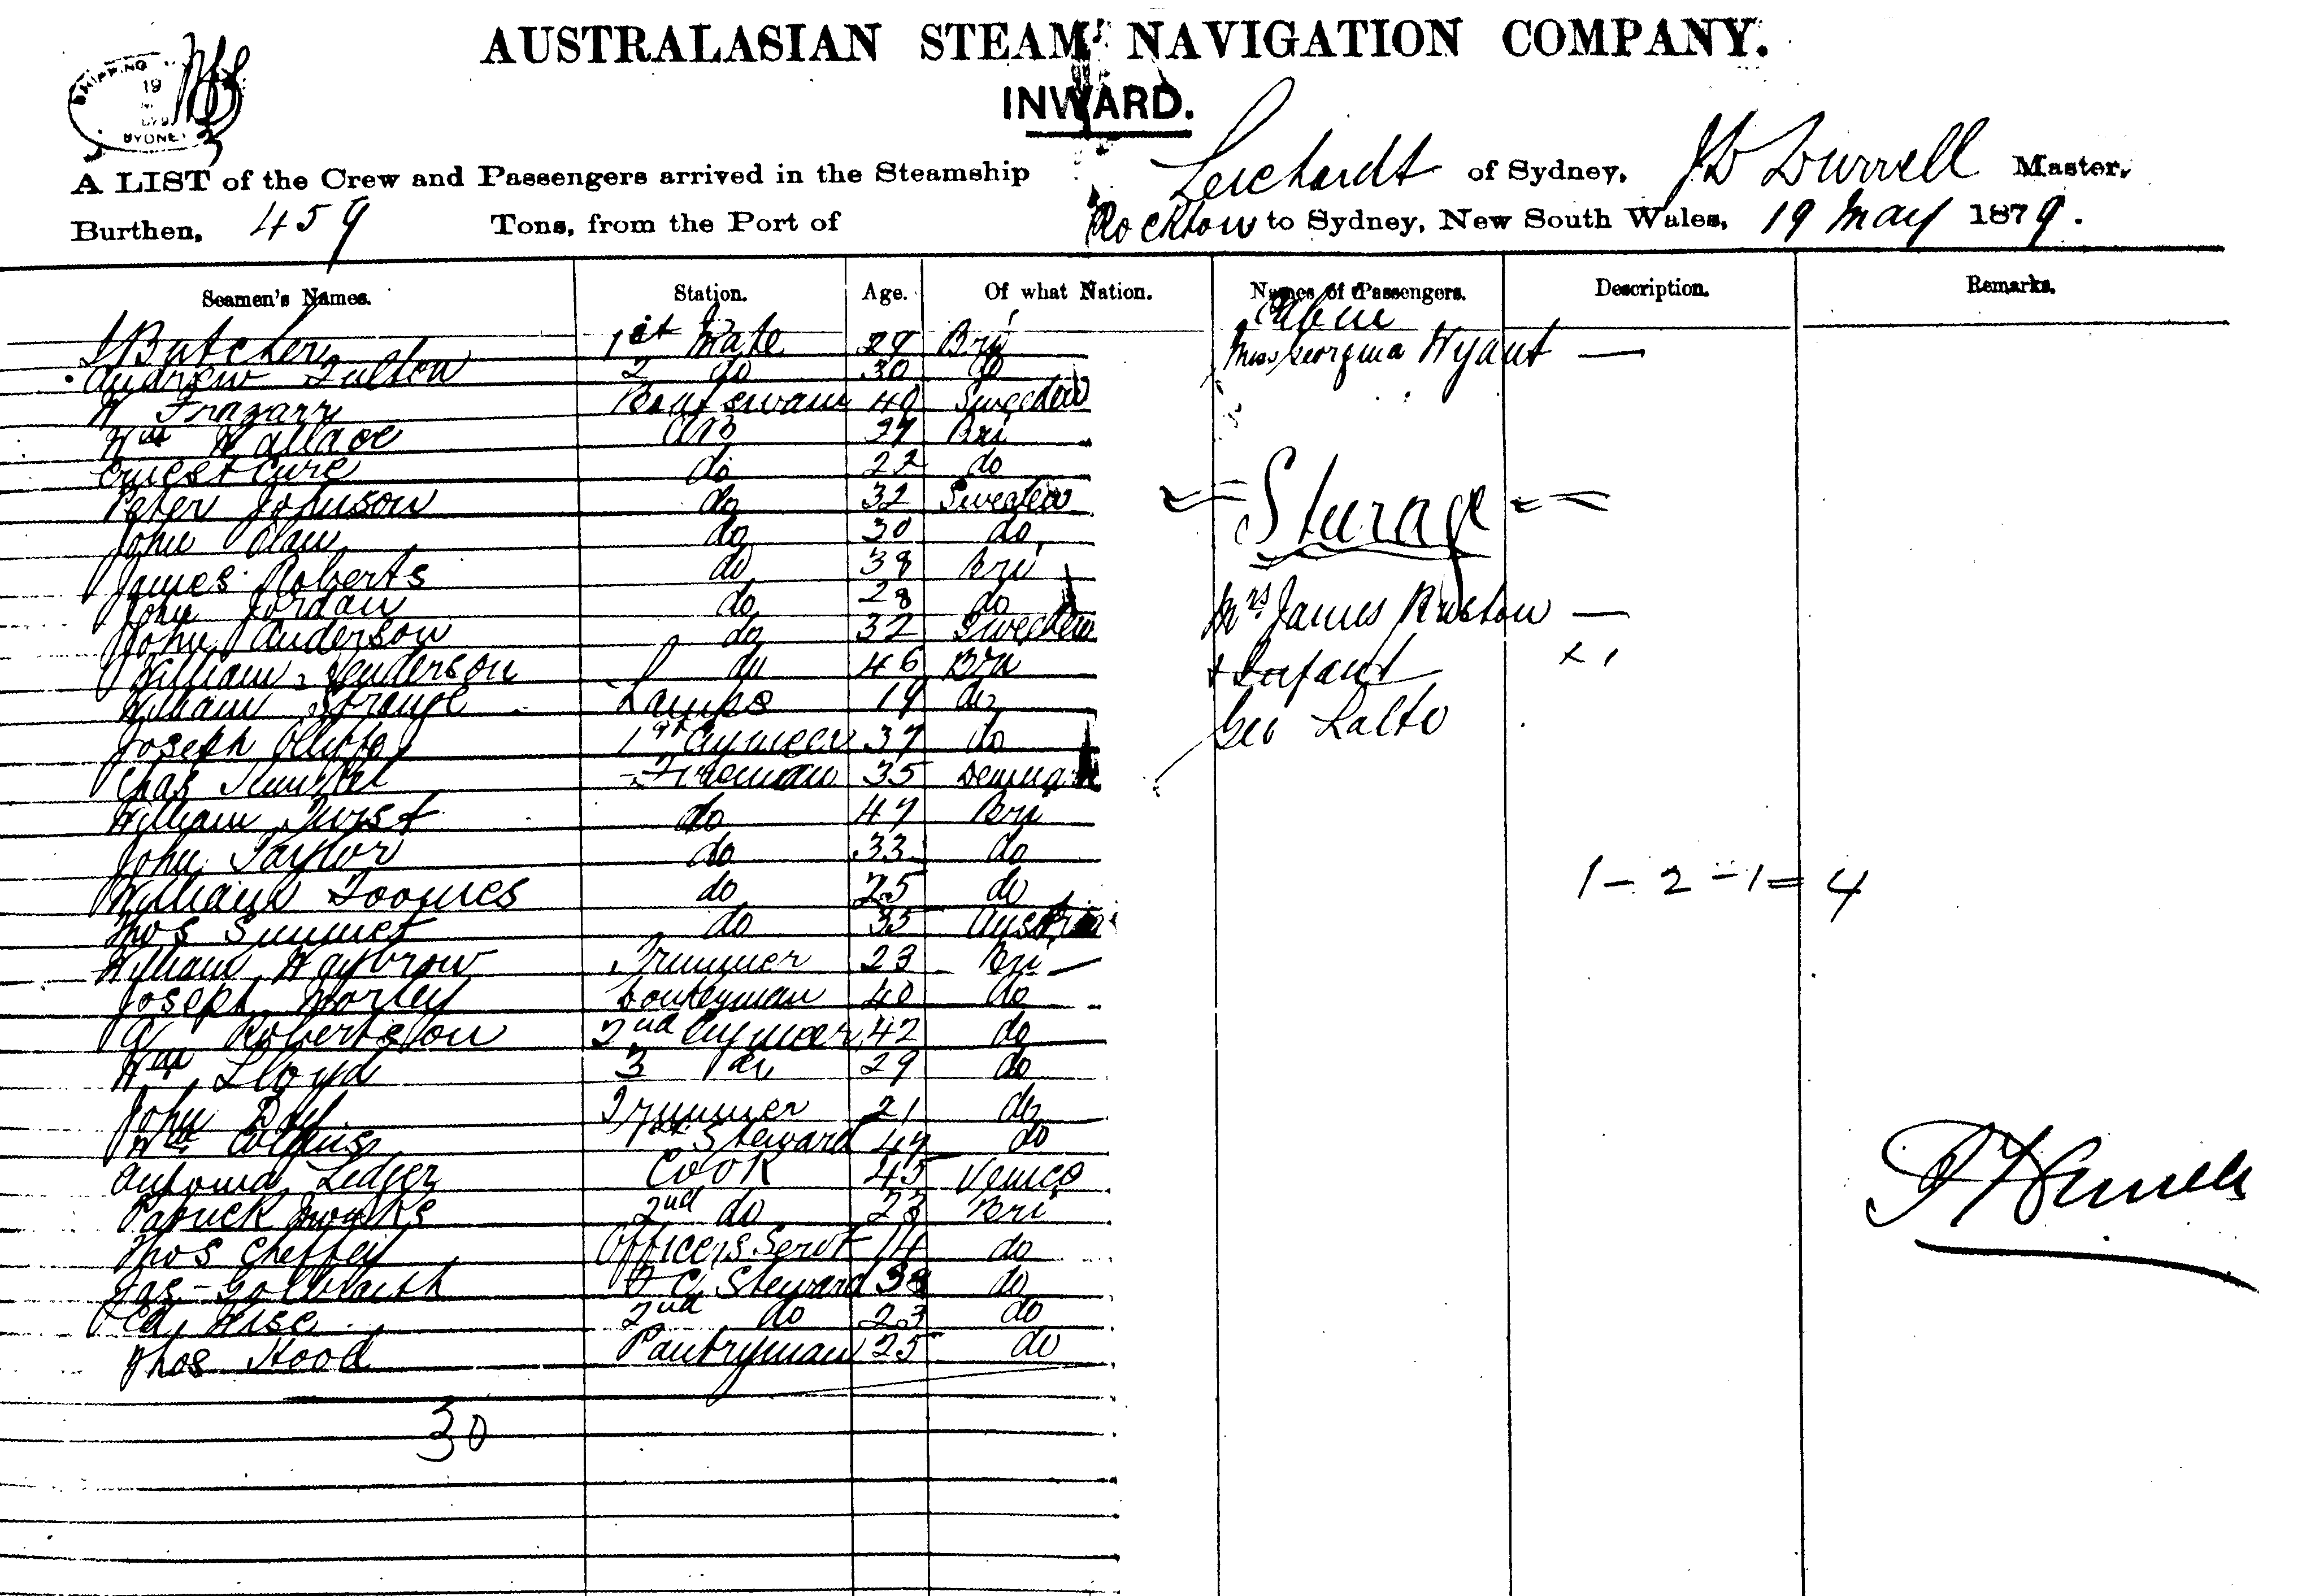 AUSTRALASIAN STEAM NAVIGATION COMPANY.
INWARD.
SHIPPING 19 SYDNEY
A LIST of the Crew and Passengers arrived in the Steamship Leichardt of Sydney, J D Durrell Master,
Burthen, 459 Tons, from the Port of Rockton to Sydney, New South Wales, 19 May 1879.
Seamen's Names. Station. Age. Of what Nation. Names of Passengers. Description. Remarks.
Butcher 1st Mate 29 Bri
Andrew Fulton 2 do 30 do
W Frazarr Boatswain 40 Sweden
Wm Wallace AB 37 Bri
Ernest Cure do 22 do
Peter Johnson do 32 Sweden
John Olaw do 30 do
James Roberts do 38 Bri
John Jordan do 28 do
John Anderson do 32 Sweden
William Henderson do 46 Bri
William Strange Lamps 19 do
Joseph 1st Engineer 37 do
Chas Fireman 35 Denmark
William do 47 Bri
John Taylor do 33 do
William Toomes do 25 do
Thos Summet do 35 Austria
William Waybrow Trimmer 23 Bri
Joseph Morley Donkeyman 40 do
Robertson 2nd Engineer 42 do
Wm Lloyd 3 do 29 do
John Day Trimmer 21 do
Wm Collins Steward 49 do
Antonia Ledger Cook 45 Venice
Patrick 2nd do 23 Bri
Thos Cheffey Officers Servt 14 do
Jas Galbraith F C Steward 38 do
Ed Wise 2nd do 23 do
Thos Hood Pantryman 25 do
30
Cabin
Miss Georgina Wyant —
Sturage
Mrs James Ruston —
+ Infant × 1
Geo Lalto
1 - 2 - 1 = 4